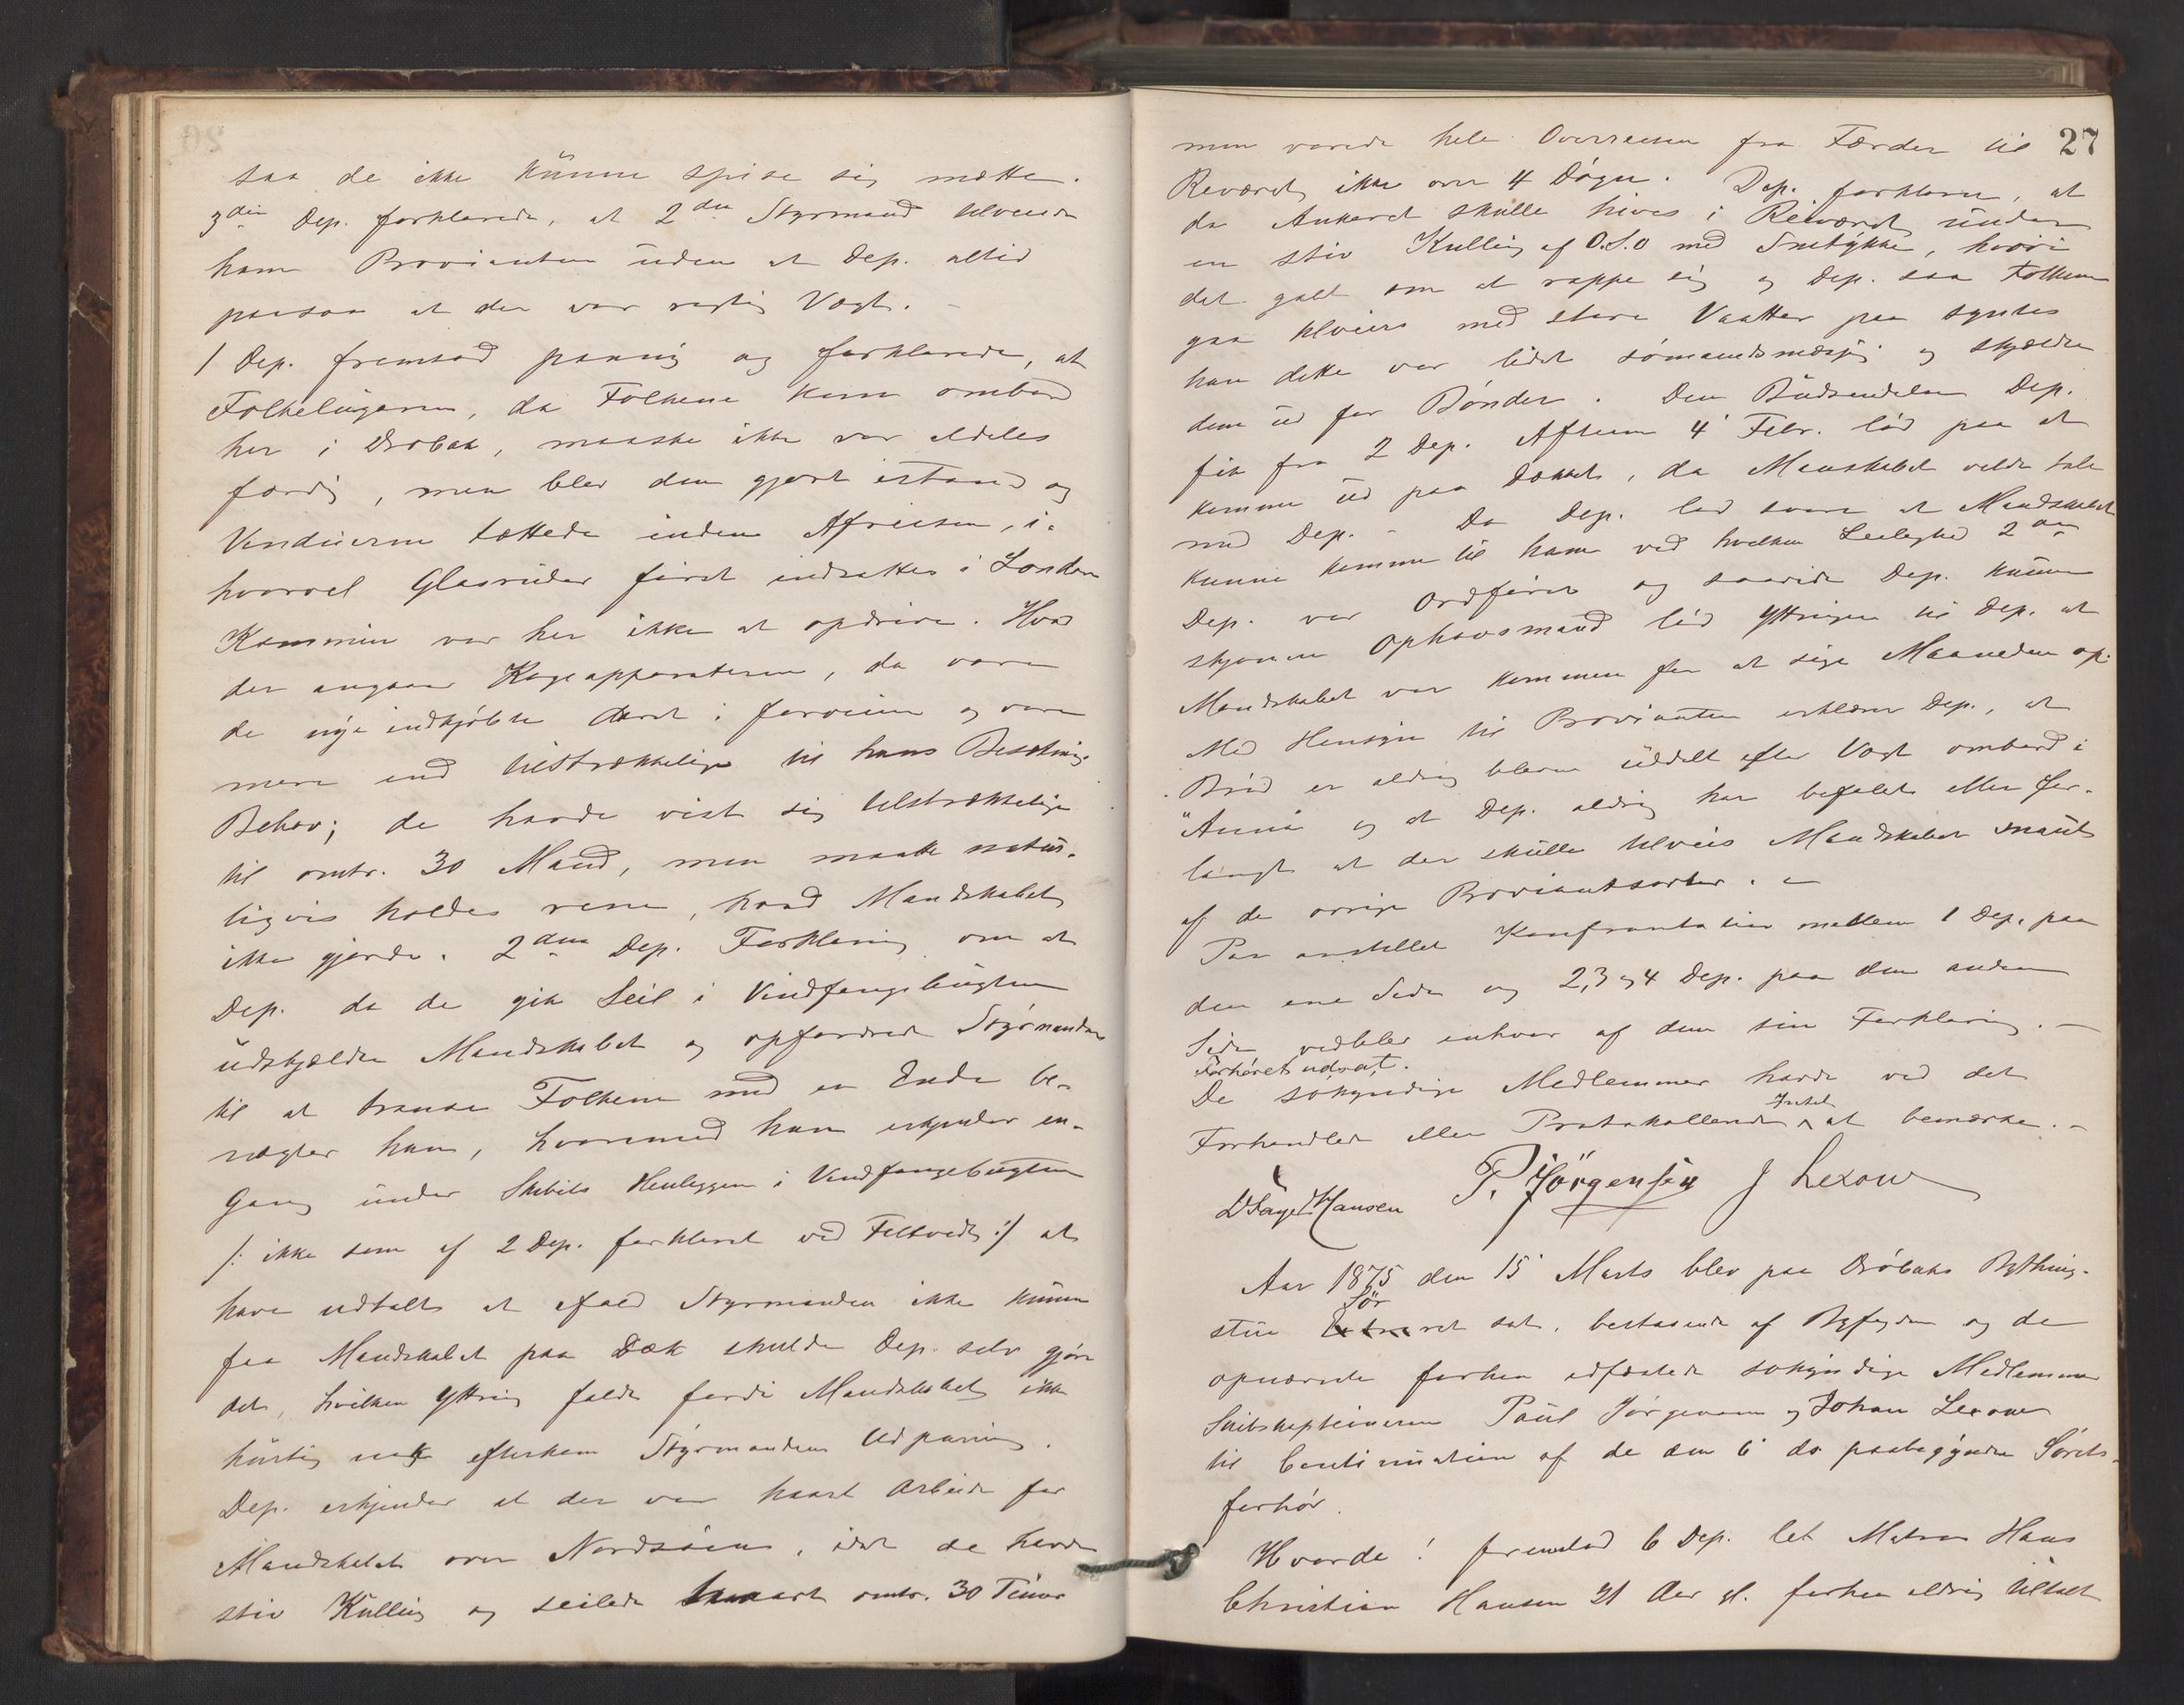 saa de ikke kunne spise sig mætte.
3die Dep. forklarede, at 2den Styrmand tilveiede
ham Provianten uden at Dep. altid
paasaa at der var rigtig Vægt. -
1 Dep. fremstod paany og forklarede, at
Folkelugaren, da Folkene kom ombord
her i Drøbak, maaske ikke var aldeles
færdig, men blev den gjort istand og
Vinduerne tættede inden Afreisen, i-
hvorvel Glasruder først indsattes i London
Kamin var her ikke at opdrive. Hvad
der angaar Kogeapparaterne, da vare
de nye indkjøbte Aaret i forveien og vare
mere end tilstrækkelige til hans Besætnings
Behov; de havde vist sig tilstrækkelige
til omtr. 30 Mand, men maatte natur-
ligvis holdes rene, hvad Mandskabet
ikke gjorde. 2den Dep. Forklaring om at
Dep. da de gik Seil i Vindfangebugten
udskjældte Mandskabet og opfordrede Styrmanden
til at branke Folkene med en Ende be-
nægter han, hvorimod han erkjender en-
gang under Skibets Henliggen i Vindfangebugten
/: ikke som af 2 Dep. forklaret ved Filtvedt :/ at
have udtalt at ifald Styrmanden ikke kunne
faa Mandskabet paa Dæk skulde Dep. selv gjøre
det, hvilken Yttring faldt fordi Mandskabet ikke
hurtig nok efterkom Styrmandens Udpurring.
Dep. erkjender at der var haart Arbeide for
Mandskabet over Nordsøen, idet de havde
stiv Kulling og seilede haardt omtr. 30 Timer
27
men varede hele Overreisen fra Færder til
Rewæred ikke over 4 Døgn. Dep. forklarer, at
da Ankeret skulle hives i Rewæred under
en stiv Kulling af O.S.O med Snetykke, hvori
det galt om at rappe sig og Dep. saa Folkene
gaa tilveirs med store Vaatter paa syntes
han dette var lidet sømandsmæssig og skjældte
dem ud for Bønder. Den Budsendelse Dep.
fik fra 2 Dep. Aftenen 4 Febr. lød paa at
komme ud paa Dækket, da Manskabet vilde tale
med Dep. - Da Dep. lod svare at Mandskabet
kunne komme til ham ved hvilken Leilighed 2den
Dep. var Ordfører og saavidt Dep. kunne
skjønne Ophavsmand lød Yttringen til Dep. at
Mandskabet var kommen for at sige Maaneden op.
Med Hensyn til Provianten erklærer Dep., at
Brød er aldrig bleven uddelt efter Vægt ombord i
"Anna og at Dep. aldrig har befalet eller for-
langt at der skulle tilveies Mandskabet knapt
af de øvrige Proviantsorter. -
Paa anstillet Konfrontation mellem 1 Dep. paa
den ene Side og 2, 3 og 4 Dep. paa den anden
Side vedblev enhver af dem sin Forklaring. -
Forhøret udsat.
De søkyndige Medlemmer havde ved det
Forhandlede eller Protokollerede Intet at bemærke. -
P. Jörgensen J Lexow
Hansen
Aar 1875 den 15 Marts blev paa Drøbaks Bything-
stue Sør
ret sat, bestaaende af Byfogden og de
opnævnte forhen edfæstede søkyndige Medlemmer
Skibskapteinerne Paul Jørgensen og Johan Lexow
til Continuation af de den 6 ds paabegyndte Sørets-
forhør.
Hvorda! fremstod 6 Dep. let Matros Hans
Christian Hansen 21 Aar gl. forhen aldrig tiltalt